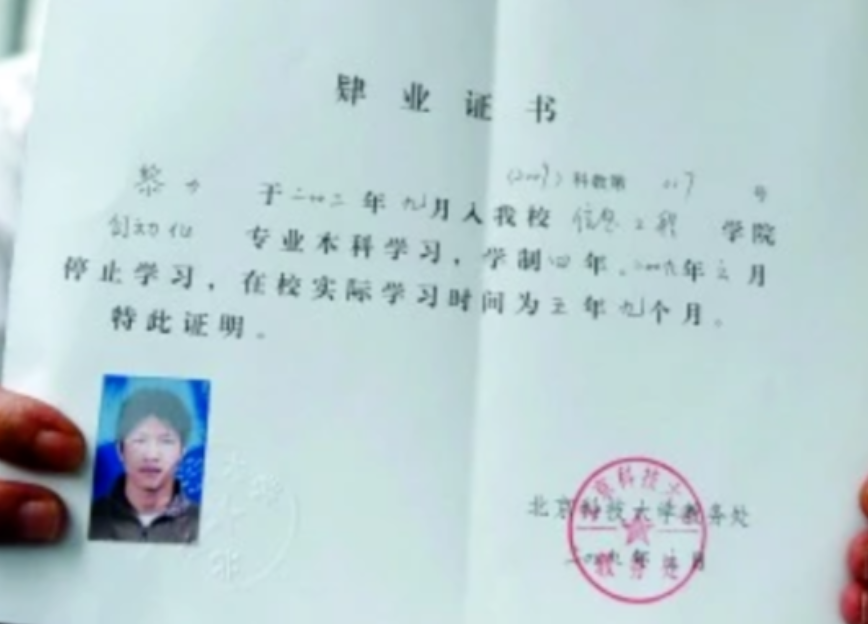 肄业证书
(2009)科教第 017 号
黎力 于二〇〇二年九月入我校信息工程学院
自动化 专业本科学习，学制四年。二〇〇九年 月
停止学习，在校实际学习时间为五年九个月。
特此证明。
北京科技大学教务处
二〇〇九年 月
教务处